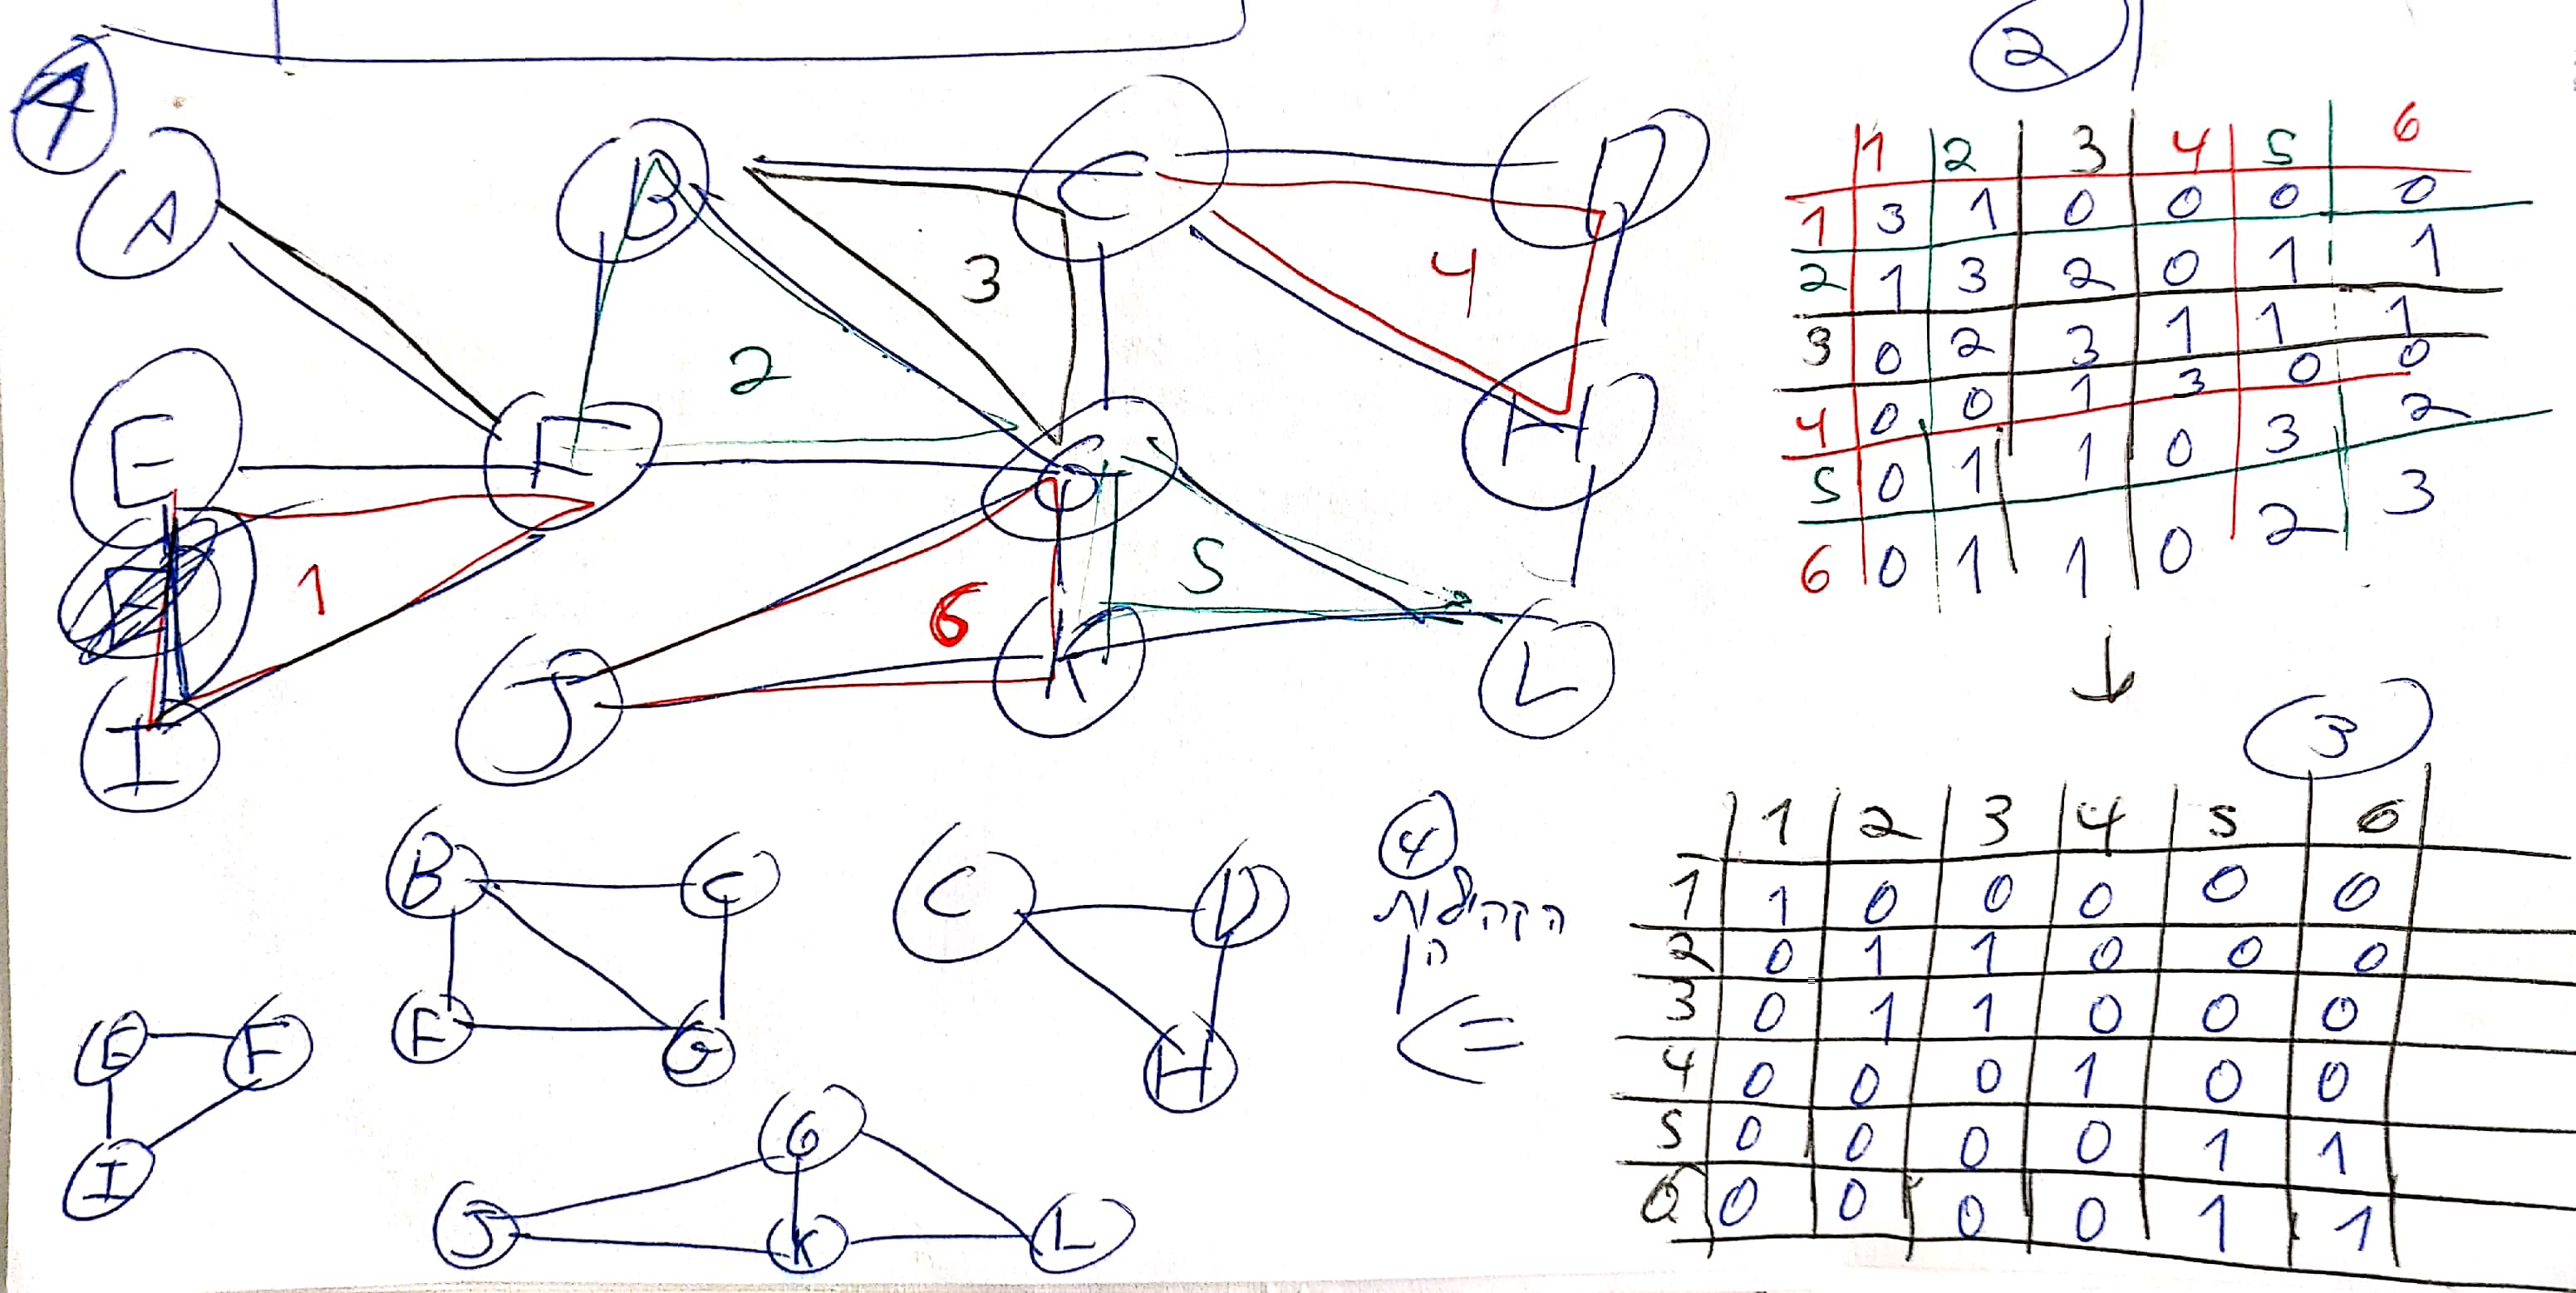 A B C D
3 4
2
E F G H
1 6 5
I J K L
2
1 2 3 4 5 6
1 3 1 0 0 0 0
2 1 3 2 0 1 1
3 0 2 3 1 1 1
4 0 0 1 3 0 0
5 0 1 1 0 3 2
6 0 1 1 0 2 3
↓
3
1 2 3 4 5 6
1 1 0 0 0 0 0
2 0 1 1 0 0 0
3 0 1 1 0 0 0
4 0 0 0 1 0 0
5 0 0 0 0 1 1
6 0 0 0 0 1 1
4
הקהילות
הן
<=
B C
F G
C D
H
E F
I
G
J K L